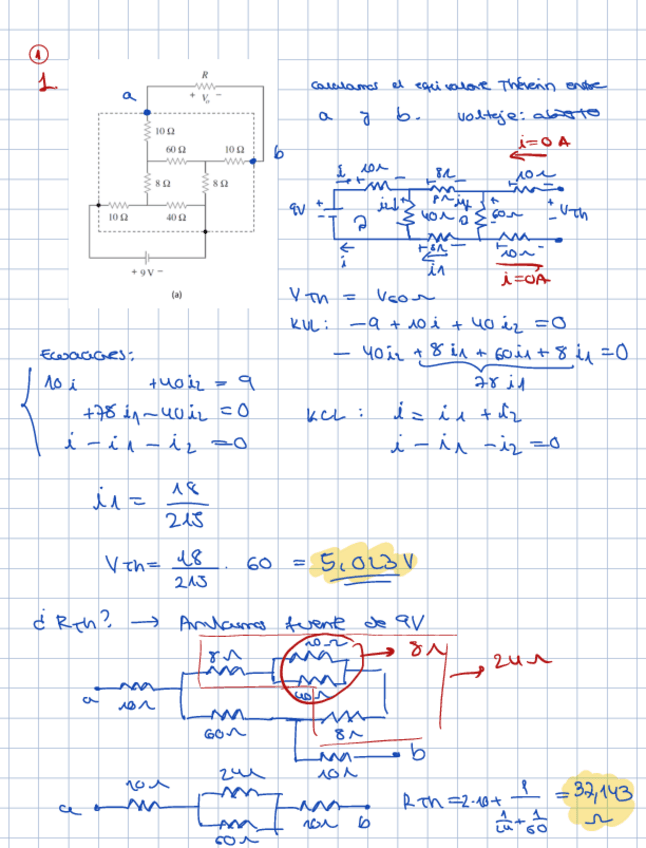 1
1.
R
+ Vo −
a
10 Ω
60 Ω
10 Ω
b
8 Ω
8 Ω
10 Ω
40 Ω
+ 9 V −
(a)
Calculamos el equivalente Thévenin entre
a y b. voltaje: abierto
i=0 A
i 10Ω 8Ω 10Ω
+ −
9V
i2↓
40Ω
60Ω
+
VTh
−
i
8Ω
i1
10Ω
i=0A
VTh = V60Ω
KVL: −9 + 10i + 40i2 = 0
− 40i2 + 8i1 + 60i1 + 8i1 = 0
78i1
Ecuaciones:
10i +40i2 = 9
+78i1−40i2 = 0
i − i1 − i2 = 0
KCL: i = i1 + i2
i − i1 − i2 = 0
i1 = 18/215
VTh = 18/215 · 60 = 5,023 V
¿RTh? → Anulamos fuente de 9V
8Ω
10Ω
→ 8Ω
→ 24Ω
a
10Ω
40Ω
60Ω
8Ω
10Ω
b
a
10Ω
24Ω
60Ω
10Ω
b
RTh = 2·10 + 1/(1/24 + 1/60) = 37,143 Ω